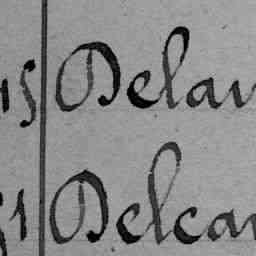 15 Delav
51 Delcar